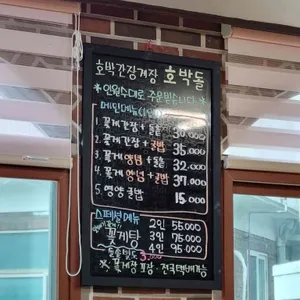 호박간장게장 호박돌
*인원수대로 주문받습니다*
메인메뉴
1. 꽃게간장 + 돌솥 30.000
2. 꽃게간장 + 굴밥 35.000
3. 꽃게양념 + 돌솥 32.000
4. 꽃게양념 + 굴밥 37.000
5. 영양굴밥 15.000
스페셜메뉴
꽃게탕
2인 55.000
3인 75.000
4인 95.000
※ 꽃게장 포장·전국택배가능